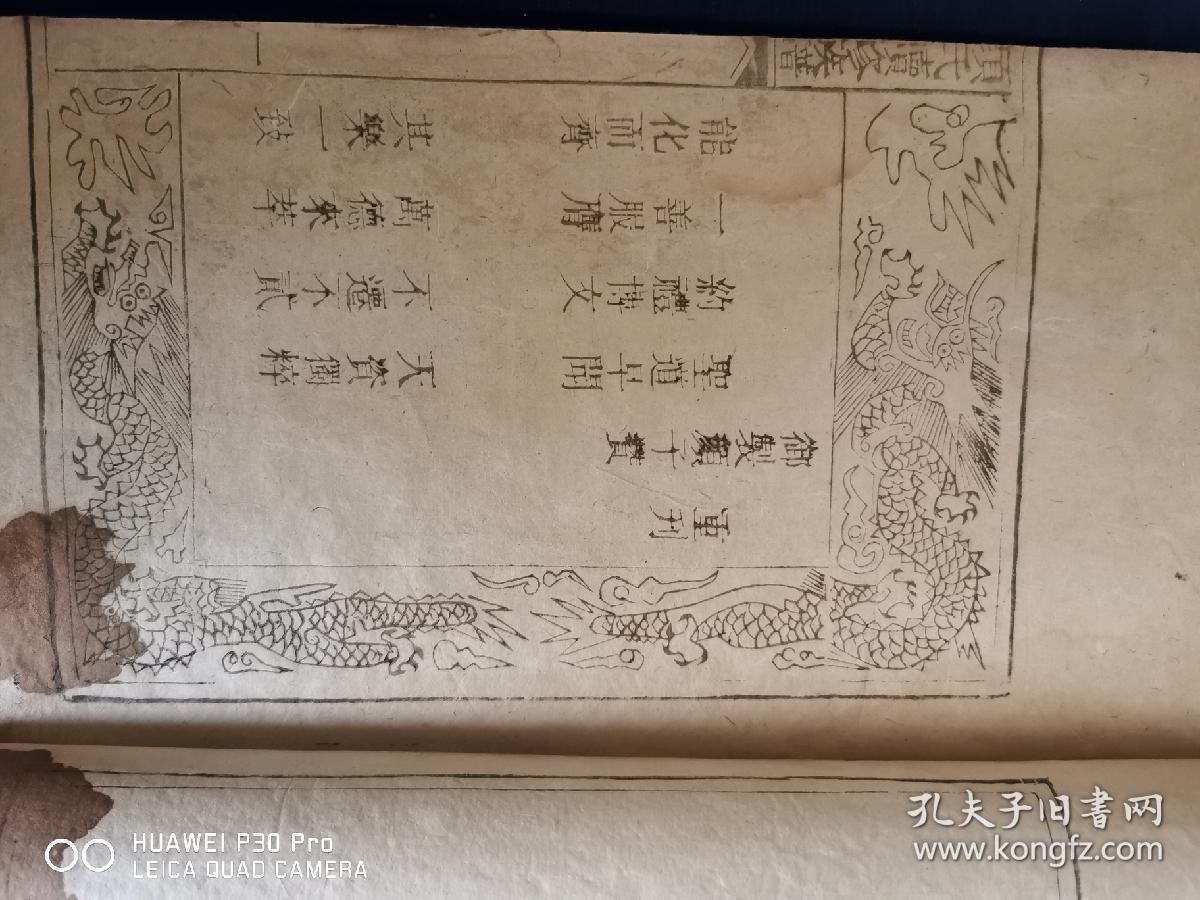 重刊
御製顏子贊
聖道早聞 天資獨粹
約禮博文 不遷不貳
一善服膺 萬德來萃
能化而齊 其樂一致
一
孔夫子旧书网
www.kongfz.com
HUAWEI P30 Pro
LEICA QUAD CAMERA